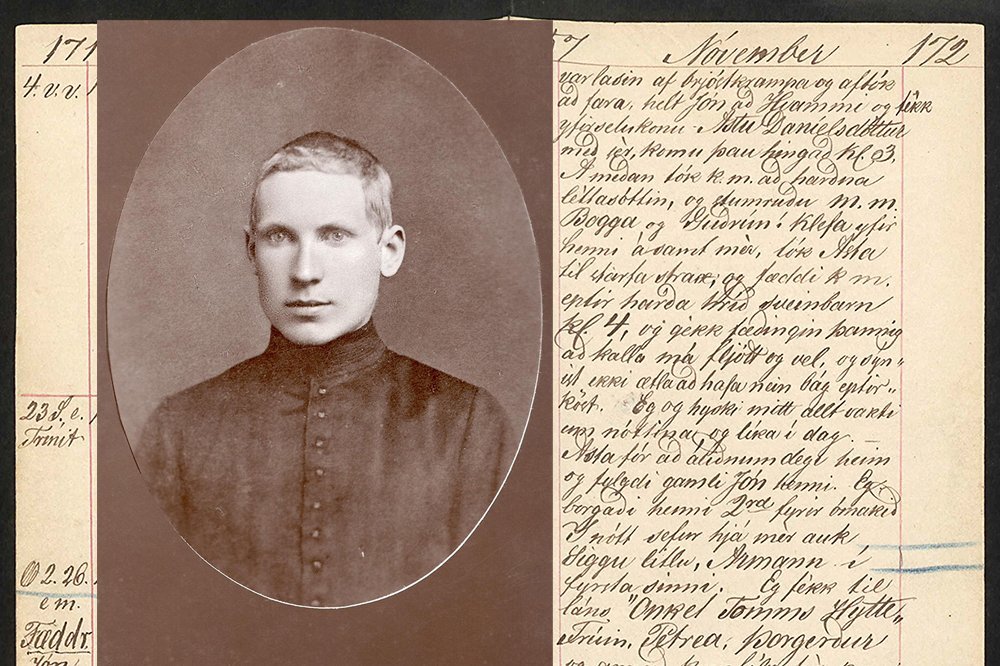 171
4. v. v.
23 S. e.
Trinit
2.26.
em.
Fæddr.
Jón
57 November 172
var lasin af brjóstkrampa og aftók
að fara, helt Jón að Hvammi og fékk
yfirsetukonu Ástu Daníelsdóttur
með sér, komu þau hingað kl. 3.
Á meðan tók k. m. að harðna
léttasóttin, og stumruðu m. m.
Bogga og Guðrún í Klefa yfir
henni ásamt mér, tók Ásta
til starfa strax, og fæddi k m.
eptir harða hríð sveinbarn
kl. 4, og gékk fæðingin þannig
að kalla má fljótt og vel, og sýn„
ist ekki ætla að hafa nein bág eptir„
köst. Eg og hyski mitt allt vakti
um nóttina og líka í dag.
Ásta fór að áliðnum degi heim
og fylgdi gamli Jón henni. Eg
borgaði henni 2rd fyrir ómakið
Í nótt sefur hjá mér auk
Siggu litlu, Ármann í
fyrsta sinni. Eg fékk til
láns "Onkel Tomms Hytte„
Frúin, Petrea, Þorgerður
og